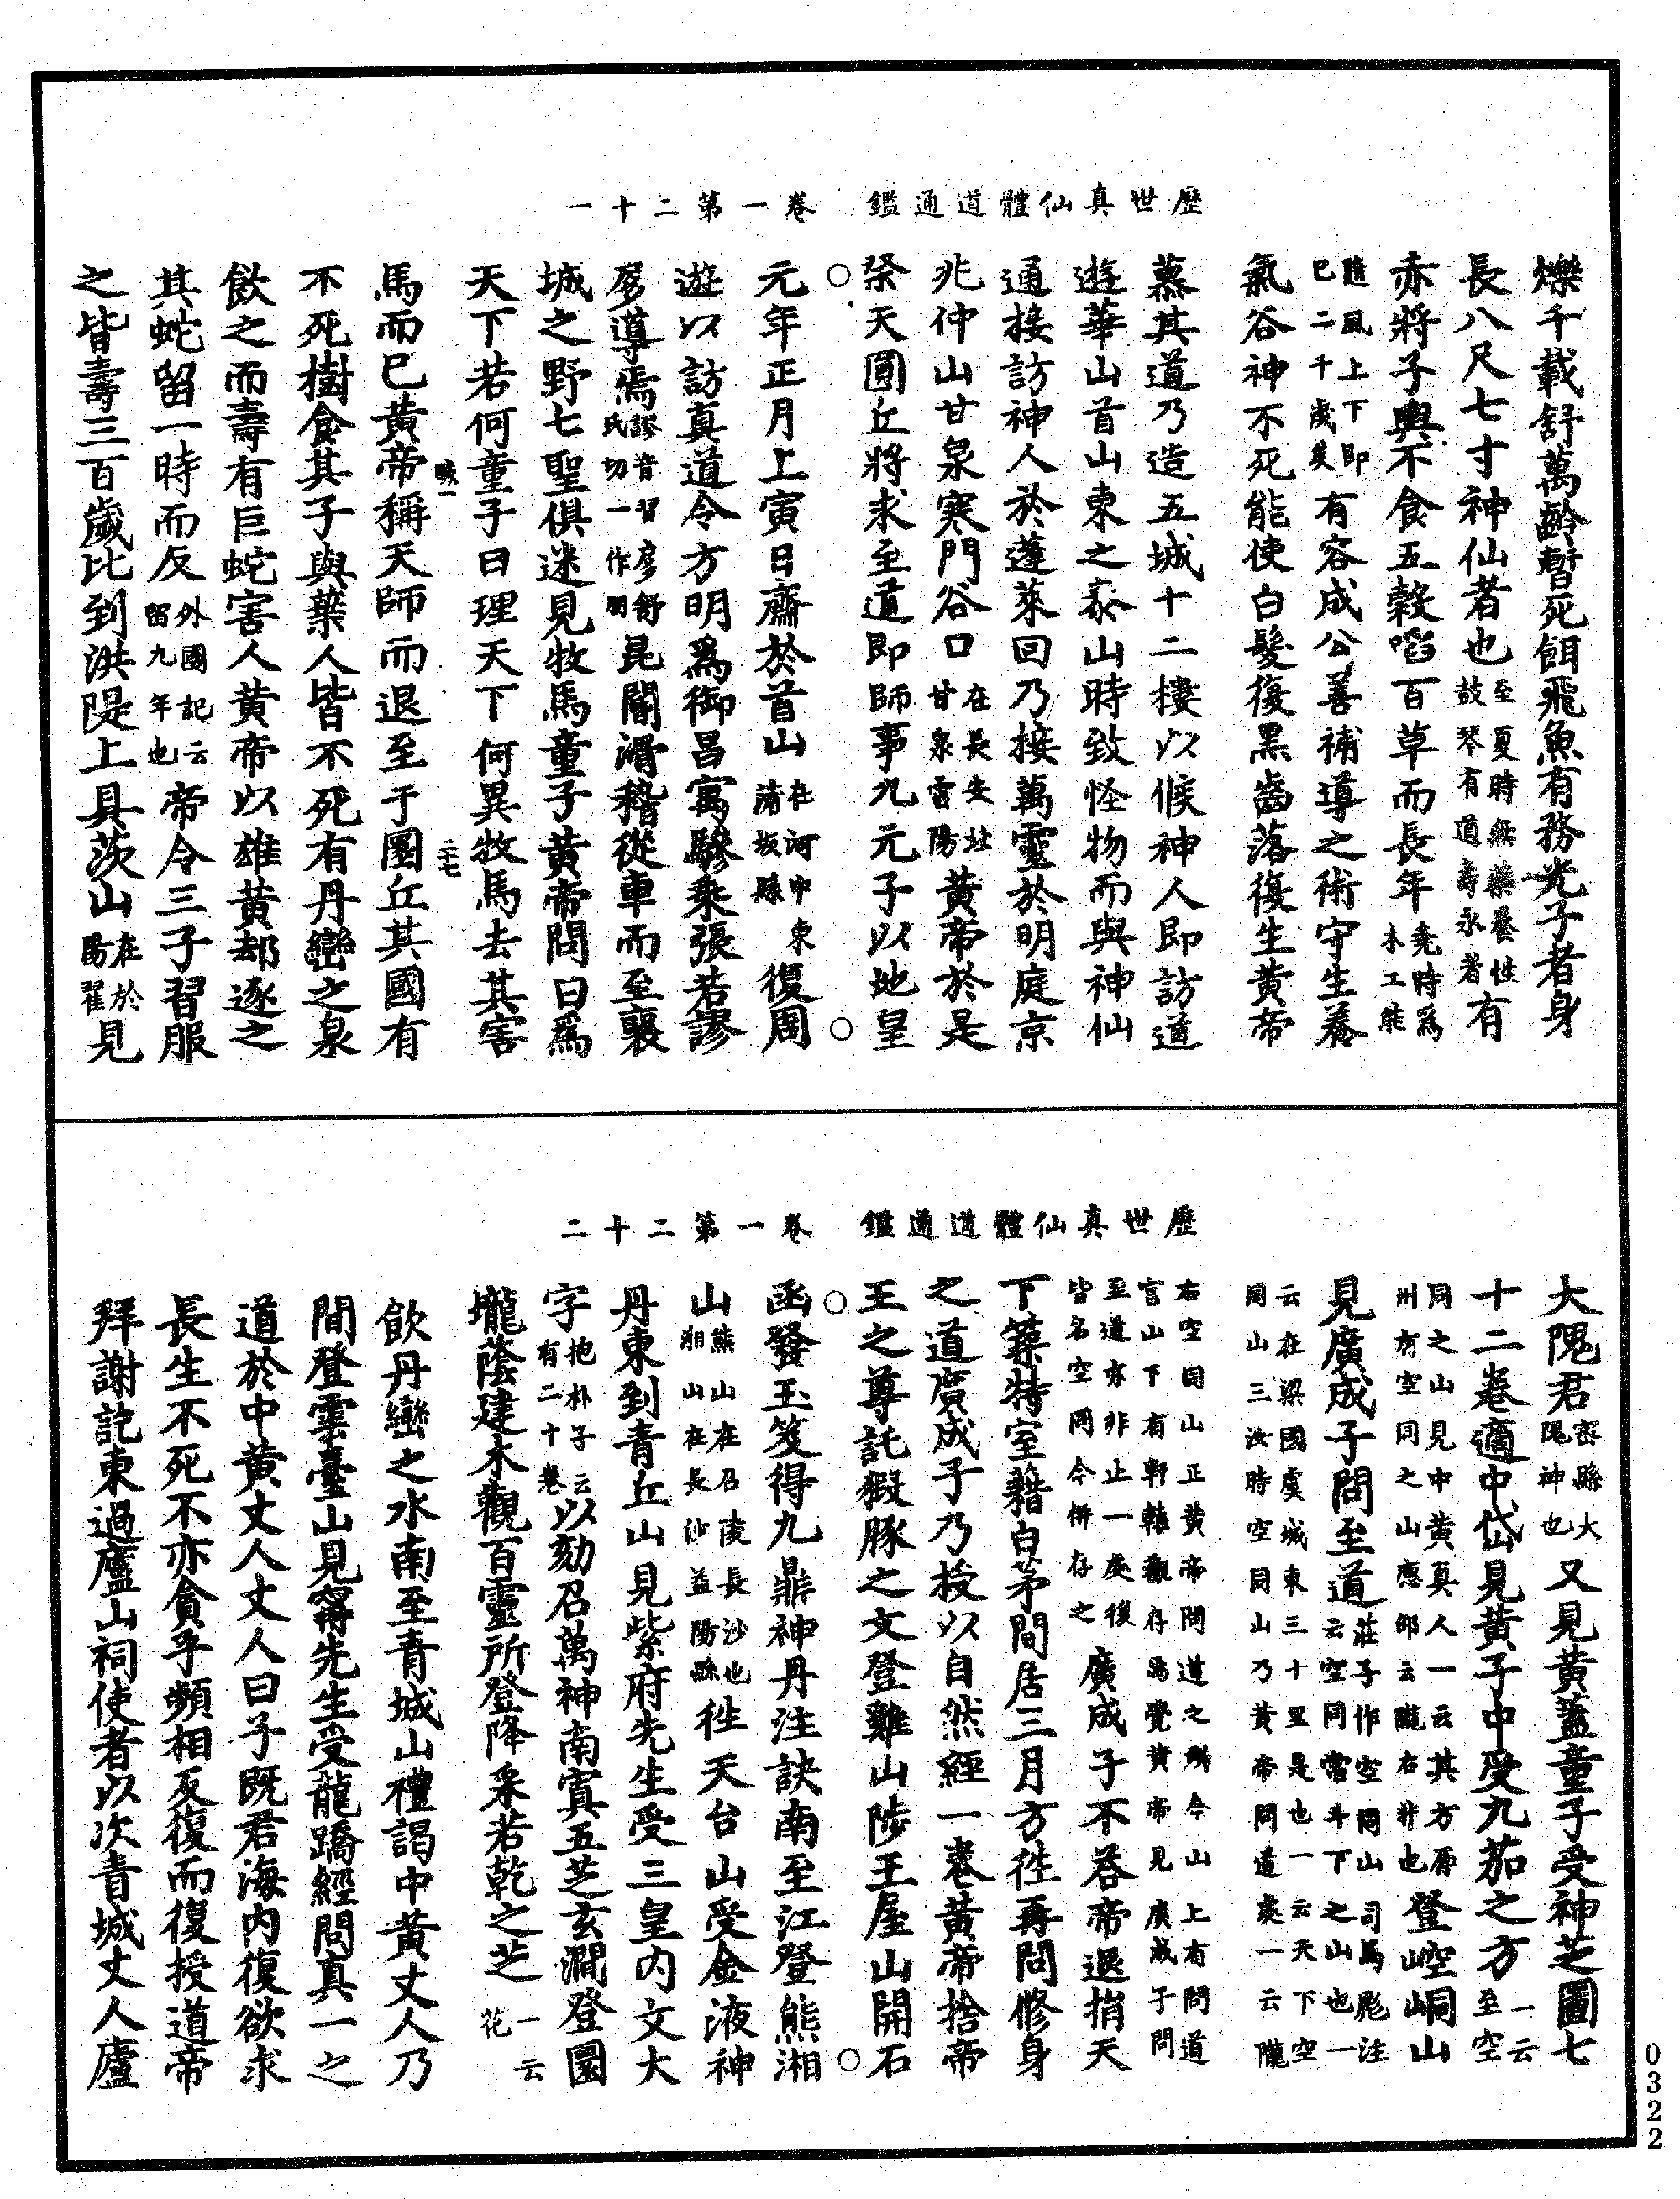 歷世真仙體道通鑑　卷一第二十一
爍千載舒萬齡暫死餌飛魚有務光子者身
長八尺七寸神仙者也至夏時無藥養性鼓琴有道壽永者有
赤將子輿不食五穀啗百草而長年堯時爲木工能
隨風上下即已二千歲矣有容成公善補導之術守生養
氣谷神不死能使白髮復黑齒落復生黃帝
慕其道乃造五城十二樓以候神人即訪道
遊華山首山東之泰山時致怪物而與神仙
通接訪神人於蓬萊回乃接萬靈於明庭京
兆仲山甘泉寒門谷口在長安北甘泉雲陽黃帝於是
祭天圓丘將求至道即師事九元子以地皇
元年正月上寅日齋於首山在河中東蒲坂縣復周
遊以訪真道令方明爲御昌寓驂乘張若謵
𢈪導焉謵音習𢈪舒氏切一作朋昆閽滑稽從車而至襄
城之野七聖俱迷見牧馬童子黃帝問曰爲
天下若何童子曰理天下何異牧馬去其害
馬而已黃帝稱天師而退至于圜丘其國有
不死樹食其子與葉人皆不死有丹巒之泉
飲之而壽有巨蛇害人黃帝以雄黃却逐之
其蛇留一時而反外國記云留九年也帝令三子習服
之皆壽三百歲比到洪隄上具茨山在於陽翟見
歷世真仙體道通鑑　卷一第二十二
大隗君密縣大隗神也又見黃蓋童子受神芝圖七
十二卷適中岱見黃子中受九茄之方一云至空
同之山見中黃真人一云其方原州有空同之山應卲云隴右村也登崆峒山
見廣成子問至道莊子作空同山司馬彪注云空同當斗下之山也一
云在梁國虞城東三十里是也一云天下空同山三汝時空同山乃黃帝問道處一云隴
右空同山正黃帝問道之所今山上有問道宮山下有軒轅觀存焉覺黃帝見廣成子問
至道亦非止一處後皆名空同今併存之廣成子不答帝退捐天
下築特室藉白茅間居三月方往再問修身
之道廣成子乃授以自然經一卷黃帝捨帝
王之尊託猳豚之文登雞山陟王屋山開石
函發玉笈得九鼎神丹注訣南至江登熊湘
山熊山在召陵長沙也湘山在長沙益陽縣往天台山受金液神
丹東到青丘山見紫府先生受三皇內文大
字抱朴子云有二十卷以劾召萬神南寘五芝玄澗登圜
壠蔭建木觀百靈所登降采若乾之芝一云花
飲丹巒之水南至青城山禮謁中黃丈人乃
間登雲臺山見甯先生受龍蹻經問真一之
道於中黃丈人丈人曰子既君海內復欲求
長生不死不亦貪乎頻相反復而復授道帝
拜謝訖東過廬山祠使者以次青城丈人廬
0322